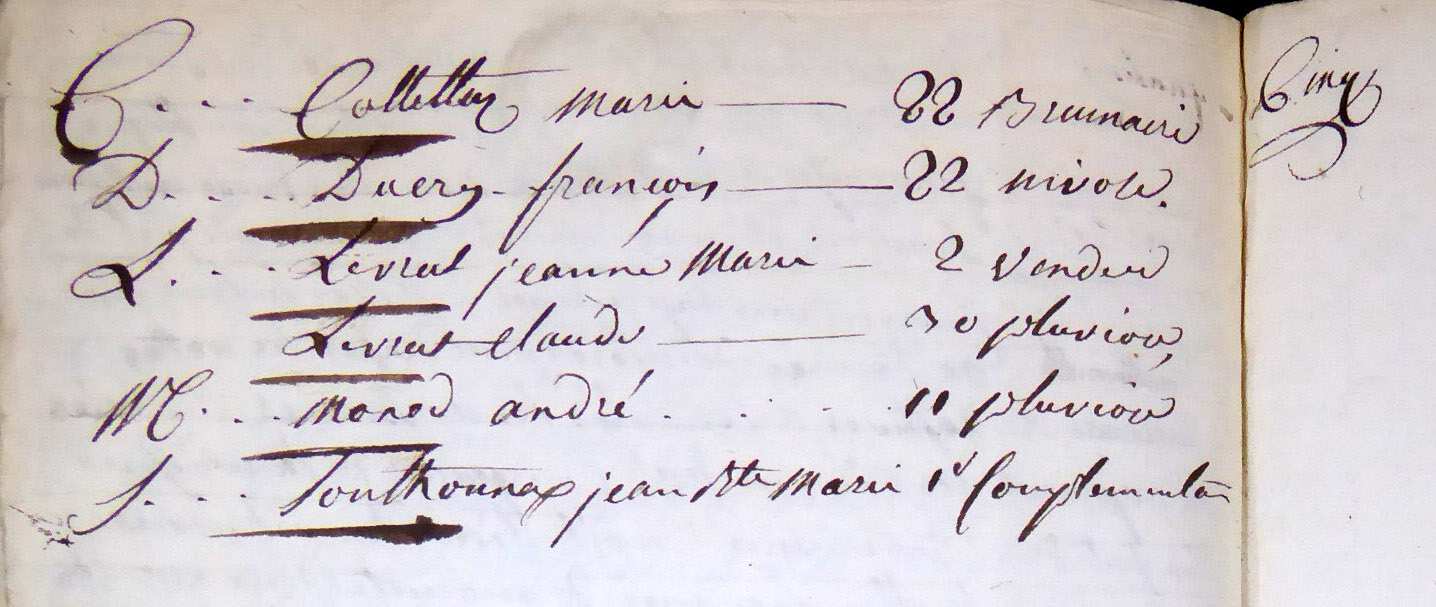 C... Collettaz marie — 22 Brumaire
D.... Ducry françois — 22 nivose.
L... Livrat jeanne Marie — 2 vendré
Livrat claude — 30 pluviose
M... Monod andré..... 11 pluviose
S... Sonthonnax jean Bte Marie 1er Complementaire
Cinq